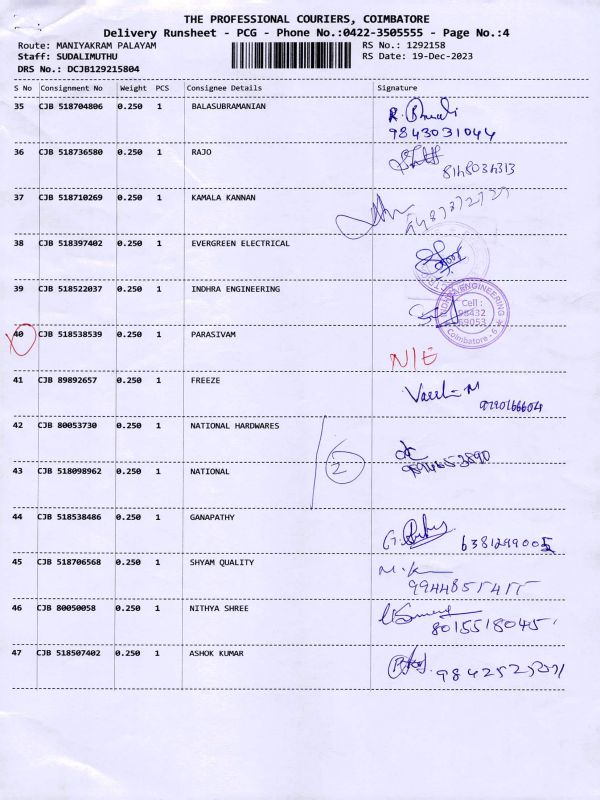 THE PROFESSIONAL COURIERS, COIMBATORE
Delivery Runsheet - PCG - Phone No.:0422-3505555 - Page No.:4
Route: MANIYAKRAM PALAYAM
RS No.: 1292158
Staff: SUDALIMUTHU
RS Date: 19-Dec-2023
DRS No.: DCJB129215804
S No Consignment No Weight PCS Consignee Details Signature
35 CJB 518704806 0.250 1 BALASUBRAMANIAN
9843031044
36 CJB 518736580 0.250 1 RAJO
8148034313
37 CJB 518710269 0.250 1 KAMALA KANNAN
38 CJB 518397402 0.250 1 EVERGREEN ELECTRICAL
39 CJB 518522037 0.250 1 INDHRA ENGINEERING
INDHRA ENGINEERING
Cell :
98432
69053
Coimbatore - 6
40 CJB 518538539 0.250 1 PARASIVAM N/E
41 CJB 89892657 0.250 1 FREEZE
42 CJB 80053730 0.250 1 NATIONAL HARDWARES
2
43 CJB 518098962 0.250 1 NATIONAL
44 CJB 518538486 0.250 1 GANAPATHY
6381299005
45 CJB 518706568 0.250 1 SHYAM QUALITY
46 CJB 80050058 0.250 1 NITHYA SHREE
8015518045
47 CJB 518507402 0.250 1 ASHOK KUMAR